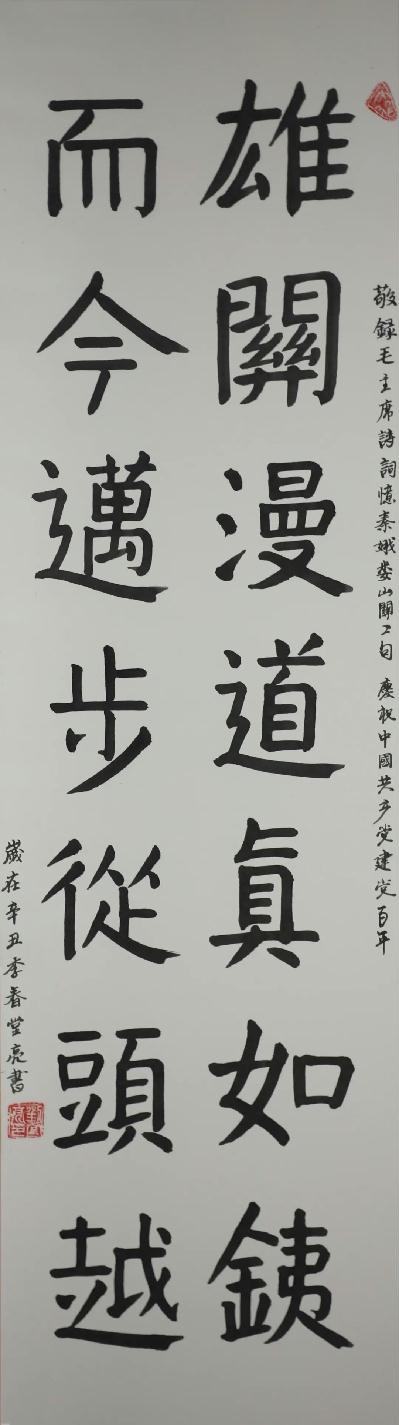 敬録毛主席詩詞憶秦娥婁山關二句 慶祝中國共产党建党百年
雄關漫道眞如銕
而今邁步從頭越
歲在辛丑季春堂亮書